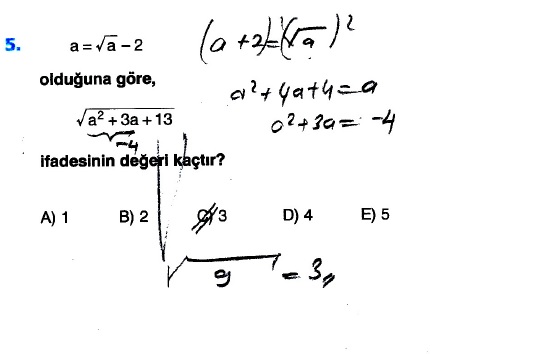 5. a = √a − 2
(a + 2)² = (√a)²
olduğuna göre,
a² + 4a + 4 = a
√a² + 3a + 13
a² + 3a = -4
-4
ifadesinin değeri kaçtır?
A) 1 B) 2 C) 3 D) 4 E) 5
√9 = 3,,